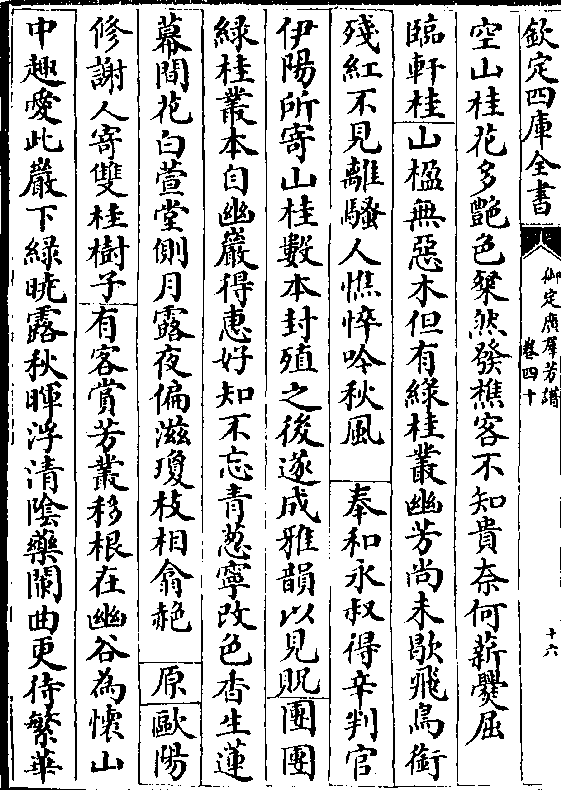 欽定四庫全書
御定廣羣芳譜
卷四十
十六
空山桂花多艷色粲然發樵客不知貴奈何薪爨屈
臨軒桂山楹無惡木但有緑桂叢幽芳尚未歇飛鳥銜
殘紅不見離騷人憔悴吟秋風　奉和永叔得辛判官
伊陽所寄山桂數本封殖之後遂成雅韻以見貺團團
緑桂叢本自幽巖得惠好知不忘青葱寧改色杏生蓮
幕間花白萱堂側月露夜偏滋瓊枝相翕赩　原歐陽
修謝人寄雙桂樹子有客賞芳叢移根在幽谷為懷山
中趣愛此巖下緑曉露秋暉浮清陰藥闌曲更待繁華